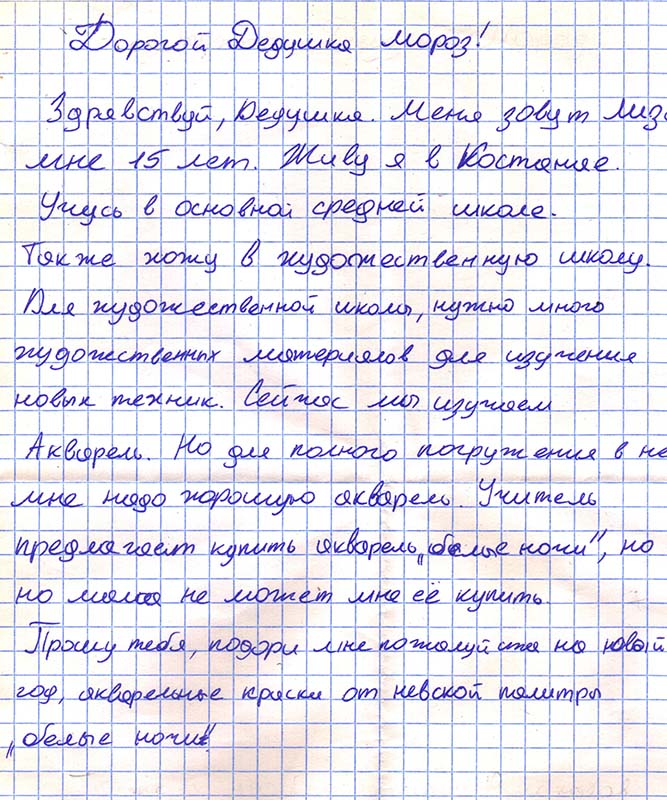 Дорогой Дедушка мороз!
Здравствуй, Дедушка. Меня зовут Лиза
мне 15 лет. Живу я в Костанае.
Учусь в основной средней школе.
Также хожу в художественную школу.
Для художественной школы, нужно много
художественных материалов для изучения
новых техник. Сейчас мы изучаем
Акварель. Но для полного погружения в не
мне надо хорошую акварель. Учитель
предлагает купить акварель „белые ночи", но
но мама не может мне её купить.
Прошу тебя, подари мне пожалуйста на новый
год, акварельные краски от невской палитры
„белые ночи".